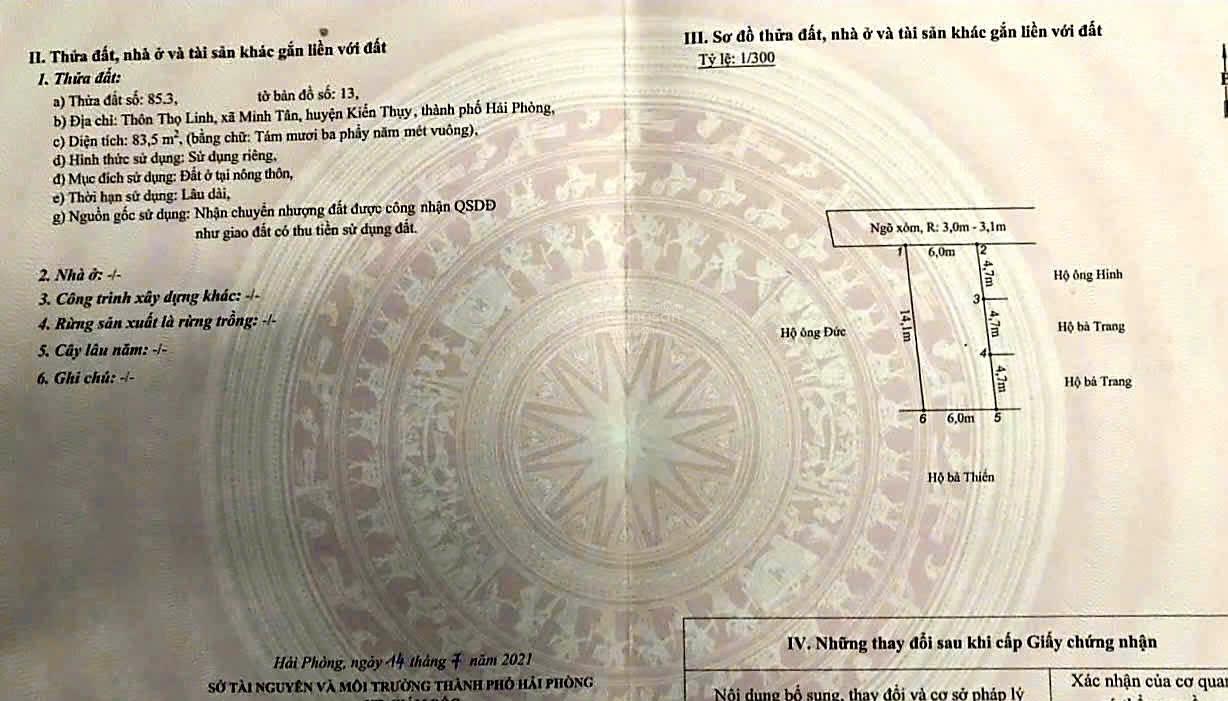 II. Thửa đất, nhà ở và tài sản khác gắn liền với đất
1. Thửa đất:
a) Thửa đất số: 85.3, tờ bản đồ số: 13,
b) Địa chỉ: Thôn Thọ Linh, xã Minh Tân, huyện Kiến Thụy, thành phố Hải Phòng,
c) Diện tích: 83,5 m², (bằng chữ: Tám mươi ba phẩy năm mét vuông),
d) Hình thức sử dụng: Sử dụng riêng,
đ) Mục đích sử dụng: Đất ở tại nông thôn,
e) Thời hạn sử dụng: Lâu dài,
g) Nguồn gốc sử dụng: Nhận chuyển nhượng đất được công nhận QSDĐ
như giao đất có thu tiền sử dụng đất.
2. Nhà ở: -/-
3. Công trình xây dựng khác: -/-
4. Rừng sản xuất là rừng trồng: -/-
5. Cây lâu năm: -/-
6. Ghi chú: -/-
Hải Phòng, ngày 14 tháng 7 năm 2021
SỞ TÀI NGUYÊN VÀ MÔI TRƯỜNG THÀNH PHỐ HẢI PHÒNG
III. Sơ đồ thửa đất, nhà ở và tài sản khác gắn liền với đất
Tỷ lệ: 1/300
Ngõ xóm, R: 3,0m - 3,1m
1 6,0m 2
4,7m
Hộ ông Hinh
3
14,1m
4,7m
Hộ bà Trang
Hộ ông Đức
4
4,7m
Hộ bà Trang
6 6,0m 5
Hộ bà Thiến
IV. Những thay đổi sau khi cấp Giấy chứng nhận
Nội dung bổ sung, thay đổi và cơ sở pháp lý
Xác nhận của cơ quan